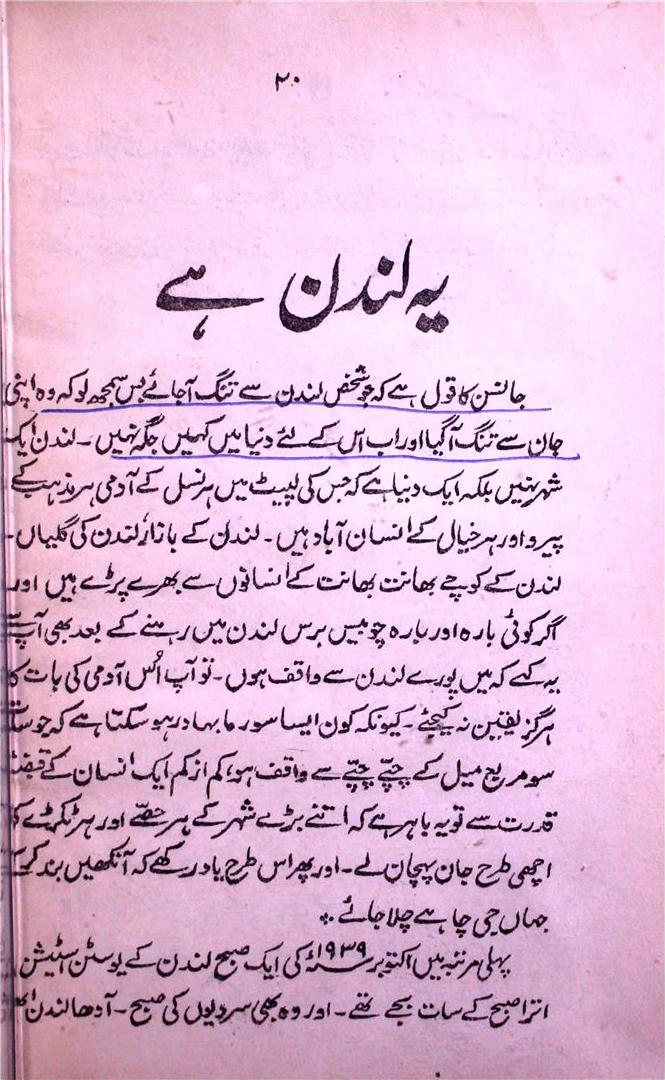 ۲۰
یہ لندن ہے
جانسن کا قول ہے کہ جو شخص لندن سے تنگ آجائے بس سمجھ لو کہ وہ اپنی
جان سے تنگ آگیا اور اب اس کے لئے دنیا میں کہیں جگہ نہیں۔ لندن ایک
شہر نہیں بلکہ ایک دنیا ہے کہ جس کی لپیٹ میں ہر نسل کے آدمی ہر مذہب کے
پیرو اور ہر خیال کے انسان آباد ہیں۔ لندن کے بازار لندن کی گلیاں۔
لندن کے کوچے بھانت بھانت کے انسانوں سے بھرے پڑے ہیں اور
اگر کوئی بارہ اور بارہ چوبیس برس لندن میں رہنے کے بعد بھی آپ سے
یہ کہے کہ میں پورے لندن سے واقف ہوں۔ تو آپ اُس آدمی کی بات کا
ہرگز یقین نہ کیجئے۔ کیونکہ کون ایسا سورما بہادر ہو سکتا ہے کہ جو
سو مربع میل کے چپّے چپّے سے واقف ہو، کم از کم ایک انسان کے
قدرت سے تو یہ باہر ہے کہ اتنے بڑے شہر کے ہر حصّے اور ہر ٹکڑے کو
اچھی طرح جان پہچان لے۔ اور پھر اس طرح یاد رکھے کہ آنکھیں بند کر کے
جہاں جی چاہے چلا جائے۔
پہلی مرتبہ میں اکتوبر ۱۹۳۹ء کی ایک صبح لندن کے یوسٹن اسٹیشن
اترا صبح کے سات بجے تھے۔ اور وہ بھی سردیوں کی صبح۔ آدھا لندن